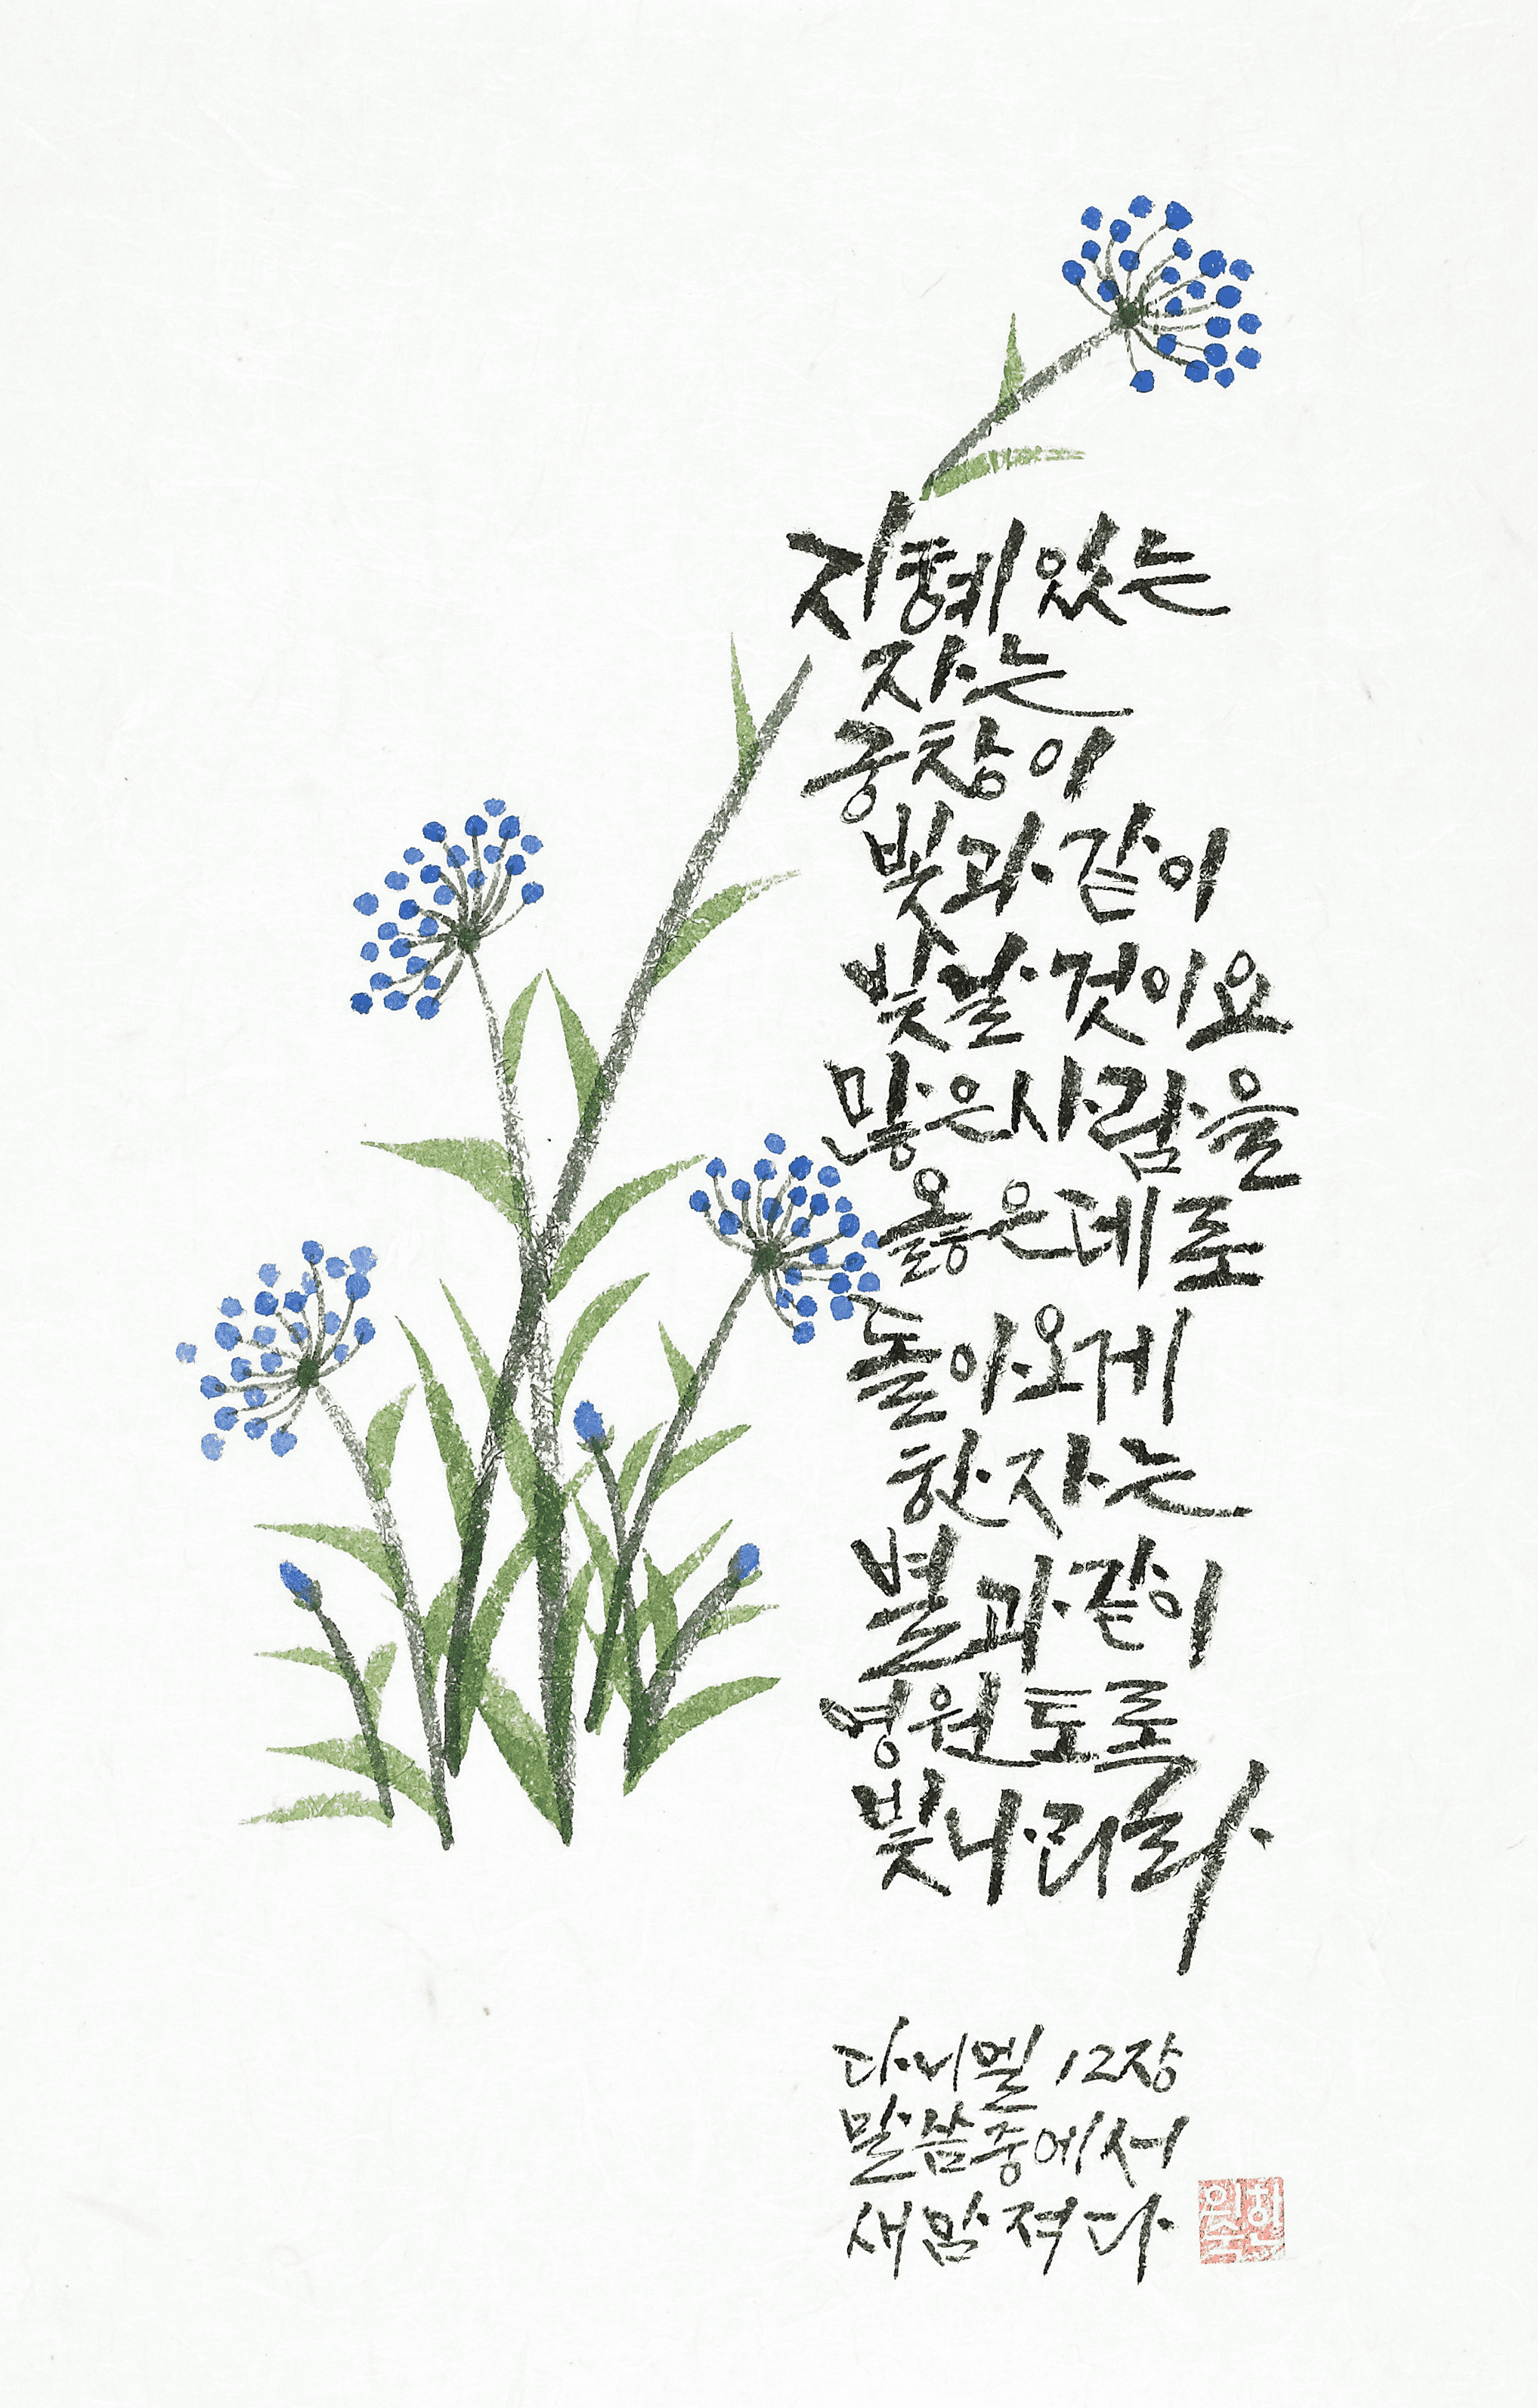 지혜 있는
자는
궁창의
빛과 같이
빛날 것이요
많은 사람을
옳은 데로
돌아오게
한 자는
별과 같이
영원토록
빛나리라
다니엘 12장
말씀 중에서
새맘 적다